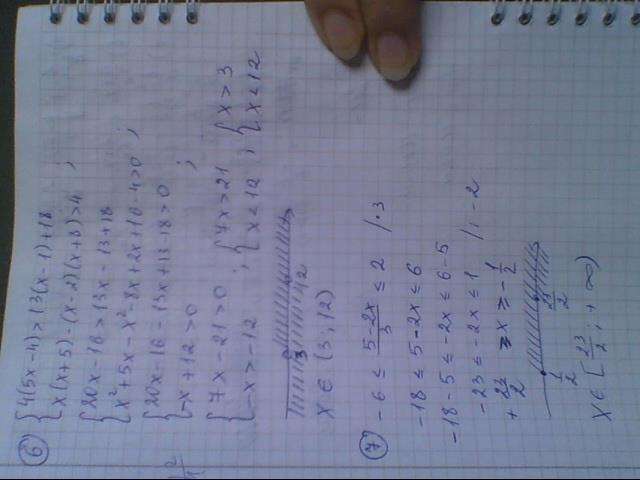 6 { 4(5x-4) > 13(x-1)+18
{ x(x+5)-(x-2)(x+8)>4 ;
{ 20x-16 > 13x-13+18
{ x²+5x-x²-8x+2x+16-4>0 ;
{ 20x-16-13x+13-18>0
{ -x+12>0 ;
{ 7x-21>0 ; { 7x>21 ; { x>3
{ -x>-12 { x<12 { x<12
3 12
x ∈ (3; 12)
7 -6 ≤ (5-2x)/3 ≤ 2 /·3
-18 ≤ 5-2x ≤ 6
-18-5 ≤ -2x ≤ 6-5
-23 ≤ -2x ≤ 1 /: -2
+ 23/2 ≥ x ≥ - 1/2
1/2 23/2
x ∈ [23/2; +∞)